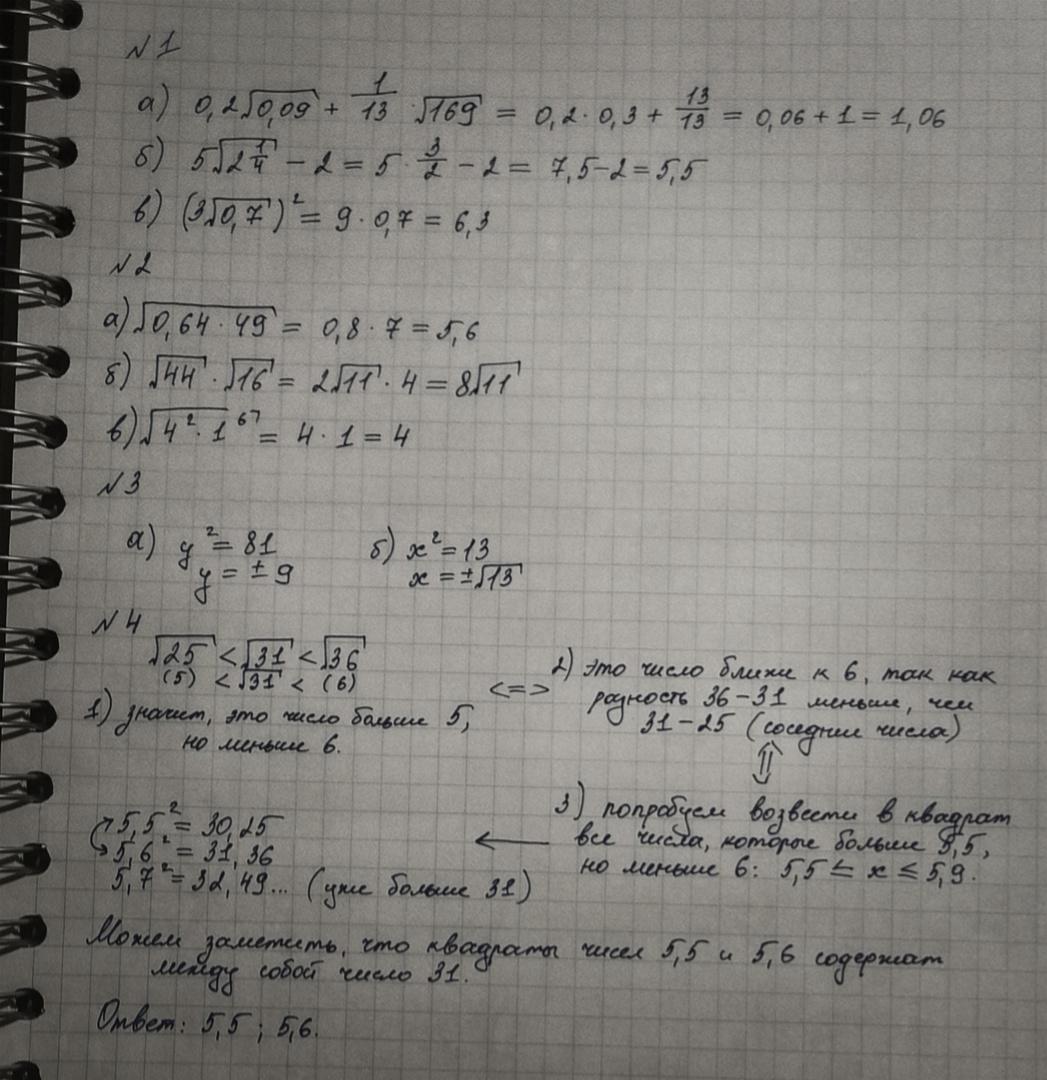 №1
а) 0,2√0,09 + 1/13 · √169 = 0,2 · 0,3 + 13/13 = 0,06 + 1 = 1,06
б) 5√2 1/4 − 2 = 5 · 3/2 − 2 = 7,5 − 2 = 5,5
в) (3√0,7)² = 9 · 0,7 = 6,3
№2
а) √0,64 · 49 = 0,8 · 7 = 5,6
б) √44 · √16 = 2√11 · 4 = 8√11
в) √4² · 1⁶⁷ = 4 · 1 = 4
№3
а) y² = 81
y = ± 9
б) x² = 13
x = ±√13
№4
√25 < √31 < √36
(5) < √31 < (6)
1) значит, это число больше 5,
но меньше 6.
<=>
2) это число ближе к 6, так как
разность 36 − 31 меньше, чем
31 − 25 (соседние числа)
⇕
3) попробуем возвести в квадрат
все числа, которые больше 5,5,
но меньше 6: 5,5 ≤ x ≤ 5,9.
←
5,5² = 30,25
5,6² = 31,36
5,7² = 32,49... (уже больше 31)
Можем заметить, что квадраты чисел 5,5 и 5,6 содержат
между собой число 31.
Ответ: 5,5 ; 5,6.